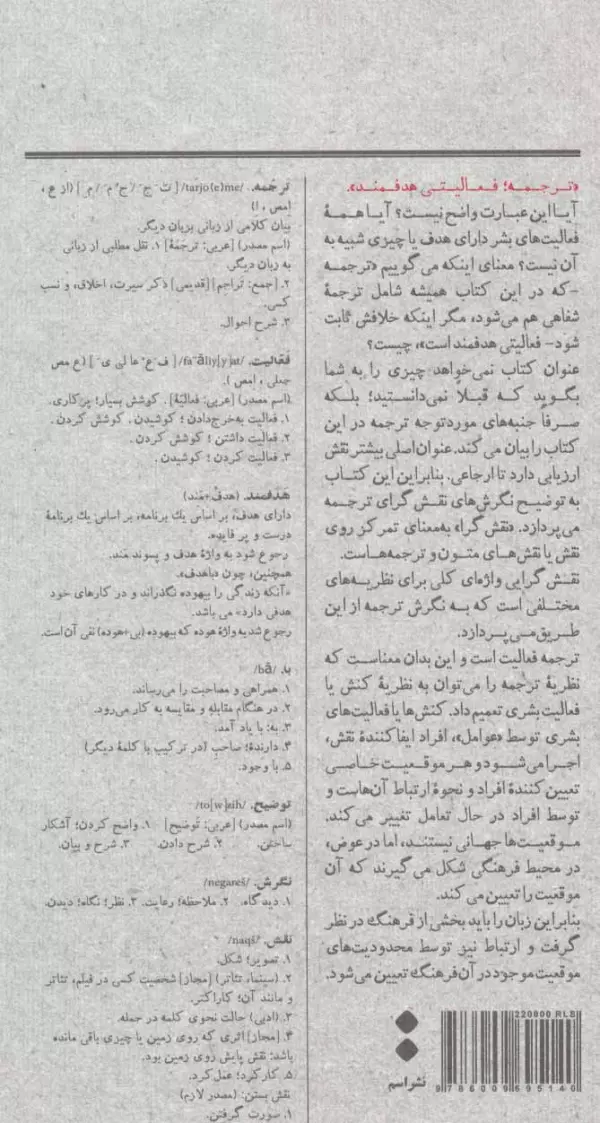 «ترجمه؛ فعالیتی هدفمند».
آیا این عبارت واضح نیست؟ آیا همهٔ
فعالیت‌های بشر دارای هدف یا چیزی شبیه به
آن نیست؟ معنای اینکه می گوییم «ترجمه
-که در این کتاب همیشه شامل ترجمهٔ
شفاهی هم می‌شود، مگر اینکه خلافش ثابت
شود- فعالیتی هدفمند است»، چیست؟
عنوان کتاب نمی‌خواهد چیزی را به شما
بگوید که قبلاً نمی‌دانستید؛ بلکه
صرفاً جنبه‌های موردتوجه ترجمه در این
کتاب را بیان می کند. عنوان اصلی بیشتر نقش
ارزیابی دارد تا ارجاعی. بنابراین این کتاب
به توضیح نگرش‌های نقش گرای ترجمه
می‌پردازد. «نقش گرا» به‌معنای تمرکز روی
نقش یا نقش‌های متون و ترجمه‌هاست.
نقش گرایی واژه‌ای کلی برای نظریه‌های
مختلفی است که به نگرش ترجمه از این
طریق می پردازد.
ترجمه فعالیت است و این بدان معناست که
نظریهٔ ترجمه را می‌توان به نظریهٔ کنش یا
فعالیت بشری تعمیم داد. کنش‌ها یا فعالیت‌های
بشری توسط «عوامل»، افراد ایفاکنندهٔ نقش،
اجرا می‌شود و هر موقعیت خاصی
تعیین کنندهٔ افراد و نحوهٔ ارتباط آن‌هاست و
توسط افراد در حال تعامل تغییر می کند.
موقعیت‌ها جهانی نیستند، اما در عوض،
در محیط فرهنگی شکل می گیرند که آن
موقعیت را تعیین می کند.
بنابراین زبان را باید بخشی از فرهنگ در نظر
گرفت و ارتباط نیز توسط محدودیت‌های
موقعیت موجود در آن فرهنگ تعیین می‌شود.
220000 RLS
9786009695140
نشر اسم
ترجمه. /tarjo(e)me/ [تَ جَ / جُ مَ / مِ] (از ع ،
اِمص ، اِ)
بیان کلامی از زبانی بزبان دیگر.
(اسم مصدر) [عربی: ترجمَة] ۱. نقل مطلبی از زبانی
به زبان دیگر.
۲. [جمع: تراجم] [قدیمی] ذکر سیرت، اخلاق، و نسب
کسی.
۳. شرح احوال.
فعّالیت. /fa''āliy[y]at/ [فَ عْ عا لی یَ] (ع مص
جعلی ، اِمص ).
(اسم مصدر) [عربی: فعالیّة] . کوشش بسیار؛ پرکاری.
۱. فعالیت به‌خرج‌دادن ؛ کوشیدن . کوشش کردن .
۲. فعالیت داشتن ؛ کوشش کردن .
۳. فعالیت کردن ؛ کوشیدن .
هَدَفمند. (هدف+مَند)
دارای هدف، بر اساس یك برنامه، بر اساس یك برنامهٔ
درست و پر فایده.
رجوع شود به واژهٔ هدف و پسوند مَند.
همچنین، چون «باهدف».
«آنکه زندگی را بیهوده نگذراند و در کارهای خود
هدفی دارد» می باشد.
رجوع شد به واژهٔ هوده که بیهوده (بی+هوده) نفی آن است.
با. /bā/
۱. همراهی و مصاحبت را می‌رساند.
۲. در هنگام مقابله و مقایسه به کار می‌رود.
۳. به: با یاد آمد.
۴. دارندهٔ؛ صاحب (در ترکیب با کلمهٔ دیگر)
۵. با وجود.
توضیح. /to[w]zih/
(اسم مصدر) [عربی: تَوضیح] ۱. واضح کردن؛ آشکار
ساختن. ۲. شرح دادن. ۳. شرح و بیان.
نگرش. /negareš/
۱. دیدگاه. ۲. ملاحظه؛ رعایت. ۳. نظر؛ نگاه؛ دیدن.
نقش. /naqš/
۱. تصویر؛ شکل.
۲. (سینما، تئاتر) [مجاز] شخصیت کسی در فیلم، تئاتر
و مانند آن؛ کاراکتر.
۲. (ادبی) حالت نحوی کلمه در جمله.
۴. [مجاز] اثری که روی زمین یا چیزی باقی مانده
باشد: نقش پایش روی زمین بود.
۵. کارکرد؛ عملکرد.
نقش بستن: (مصدر لازم)
۱. صورت گرفتن.